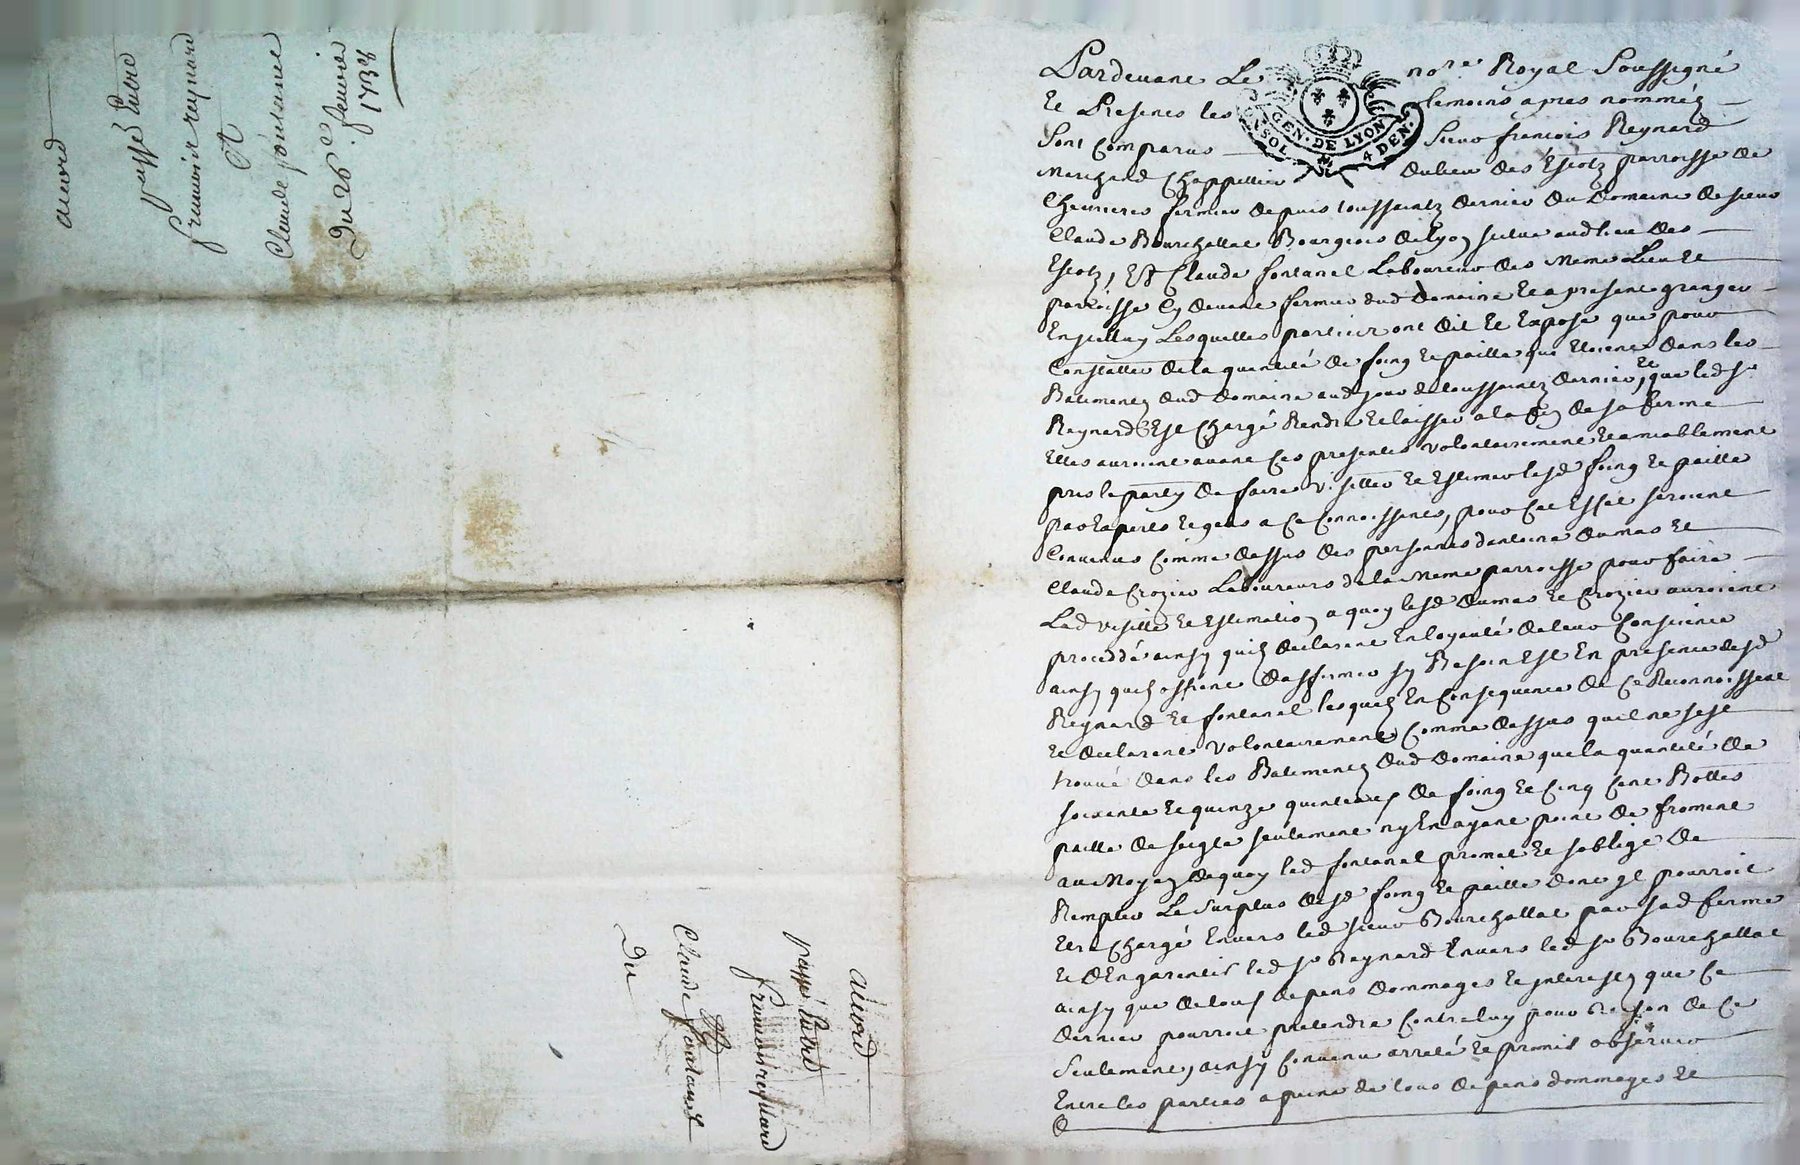 accord
passé Entre
francois reynard
et
Claude fontanel
Du 26e Janvier
1738
accord
passé Entre
francois reynard
et
Claude fontanel
Du
Pardevant Le nore Royal Soussigné
Et Presents les temoins apres nommés
Sont Comparus Sieur francois Reynard
Marchand Chappellier du lieu des Escotz parroisse de
Chevrieres fermier depuis toussaintz dernier du Domaine de sieur
Claude Bourchallat Bourgeois de Lyon scitué aud lieu des
Escotz, Et Claude fontanel Laboureur des Meme Lieu Et
parroisse Cy devant fermier dud Domaine Et a present granger
En jcelluy Lesquelles parties ont dit Et Exposé que pour
Constatter de la quantité de foing Et paille que Etoient dans les
Batiments dud Domaine au jour de toussaintz dernier, Et que led sr
Reynard Est Chargé Rendre Et laisser a la fin de sa ferme
Elles auroient avant Ces presentes volontairement Et amiablement
pris le party de faire visitter Et Estimer lesd foing Et paille
par Experts Et gens a Ce Connoissents, pour Cet Effet seroient
Convenus Comme dessus des personnes dantoine dumas Et
Claude Crozier Laboureurs de la Meme parroisse pour faire
Lad visitte Et Estimation a quoy lesd dumas Et Crozier auroient
proceddé ainsy quils declarent En loyauté de leur Conscience
ainsy quils offrent daffirmer sy Besoin Est En presence desd
Reynard Et fontanel lesquels En Consequence de Ce Reconnoissent
Et declarent volontairement Comme dessus quil ne sest
trouvé dans les Batiments dud Domaine que la quantité de
soixante Et quinze quinteaux de foing Et Cinq Cent Bottes
paille de seigle seulement ny En ayant point de froment
au Moyen de quoy led fontanel promet Et soblige de
Remplir Le Surplus desd foing Et paille dont jl pourroit
Etre Chargé Envers led sieur Bourchallat par sad ferme
Et dEn garentir led sr Reynard Envers led sr Bourchallat
ainsy que de tous depens dommages Et jnterests que Ce
dernier pourroit pretendre Contre luy pour Raison de Ce
Seulement, ainsy Convenu arreté Et promis observer
Entre les parties a peine de tous depens dommages Et
GEN. DE LYON
4 DEN.